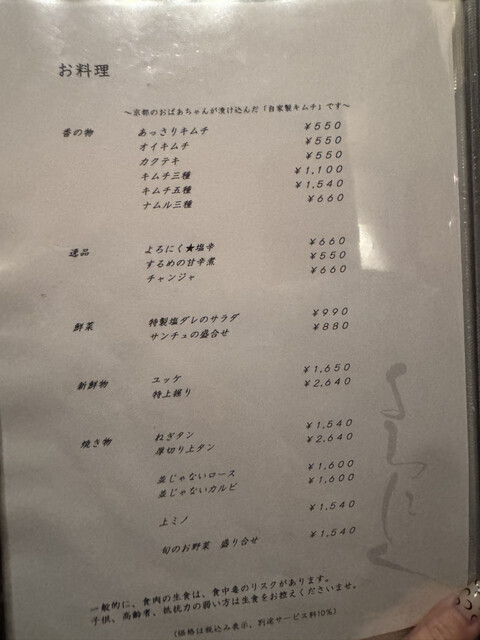 お料理
～京都のおばあちゃんが漬け込んだ「自家製キムチ」です～
香の物 あっさりキムチ ￥550
オイキムチ ￥550
カクテキ ￥550
キムチ三種 ￥1,100
キムチ五種 ￥1,540
ナムル三種 ￥660
逸品 よろにく★塩辛 ￥660
するめの甘辛煮 ￥550
チャンジャ ￥660
鮮菜 特製塩ダレのサラダ ￥990
サンチュの盛合せ ￥880
新鮮物 ユッケ ￥1,650
特上握り ￥2,640
焼き物 ねぎタン ￥1,540
厚切り上タン ￥2,640
並じゃないロース ￥1,600
並じゃないカルビ ￥1,600
上ミノ ￥1,540
旬のお野菜 盛り合せ ￥1,540
よろにく
一般的に、食肉の生食は、食中毒のリスクがあります。
子供、高齢者、抵抗力の弱い方は生食をお控えくださいませ。
(価格は税込み表示、別途サービス料10％)